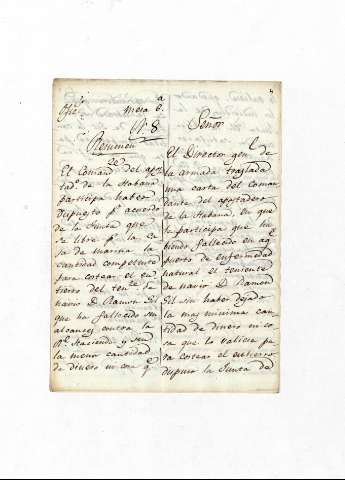 Mesa 6.ª
N. 8
Resumen
El Comand.te del apos-
tad.º de la Habana
participa haber
dispuesto p.r acuerdo
de la Junta que
se libre p.r la te
sa de marina la
cantidad competente
para costear el en
tierro del ten.te de
navio D. Ramon Gil
que ha fallecido sin
alcances contra la
R.l Hacienda y sin
la menor cantidad
de dinero ni cosa q.e
Señor
El Director gen.l de
la armada traslada
una carta del Coman
dante del apostadero
de la Habana, en que
participa que ha-
biendo fallecido en aq.l
puerto de enfermedad
natural el teniente
de navio D. Ramon
Gil sin haber dejado
la mas minima can
tidad de dinero ni co
sa que lo valiera pa
ra costear el entierro
dispuso la Junta de